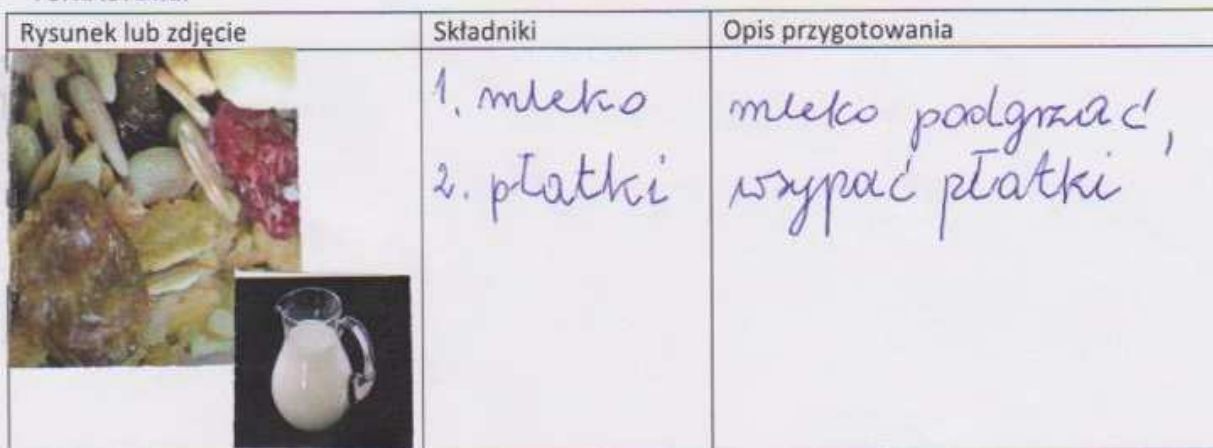 Rysunek lub zdjęcie
Składniki
Opis przygotowania
1. mleko
2. płatki
mleko podgrzać,
wsypać płatki